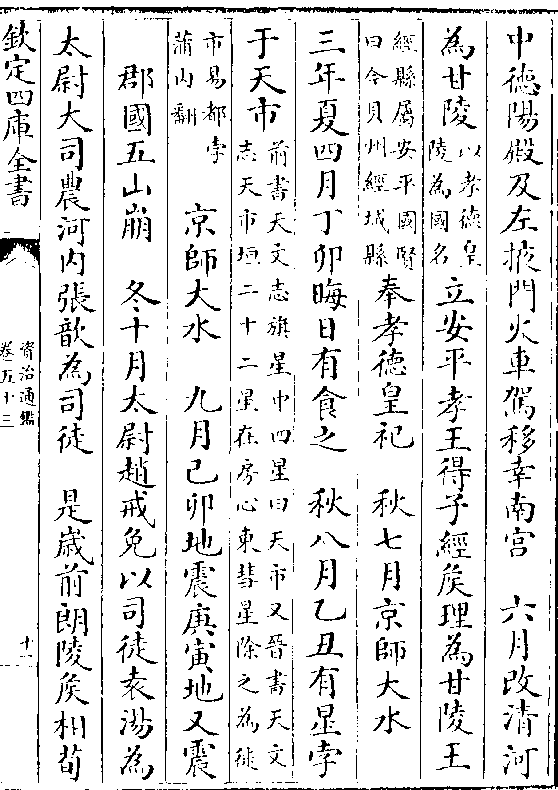 中德陽殿及左掖門火車駕移幸南宫　六月改清河
為甘陵以孝德皇陵為國名立安平孝王得子經侯理為甘陵王
經縣屬安平國賢曰今貝州經城縣奉孝德皇祀　秋七月京師大水
三年夏四月丁卯晦日有食之　秋八月乙丑有星孛
于天市前書天文志旗星中四星曰天市又晉書天文志天市垣二十二星在房心東彗星除之為徙
市易都孛蒲内翻　京師大水　九月己卯地震庚寅地又震
郡國五山崩　冬十月太尉趙戒免以司徒袁湯為
太尉大司農河内張歆為司徒　是歲前朗陵侯相荀
欽定四庫全書
資治通鑑
卷五十三
十一